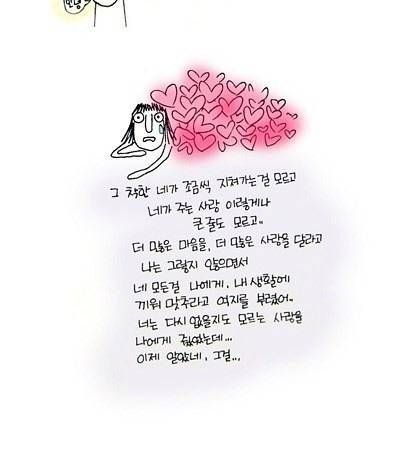 그 착한 네가 조금씩 지쳐가는걸 모르고
네가 주는 사랑 이렇게나
큰 줄도 모르고..
더 많은 마음을, 더 많은 사랑을 달라고
나는 그렇지 않으면서
네 모든걸 나에게, 내 생활에
끼워 맞추라고 억지를 부렸어..
너는 다시 없을지도 모르는 사랑을
나에게 줬었는데...
이제 알았네, 그걸...